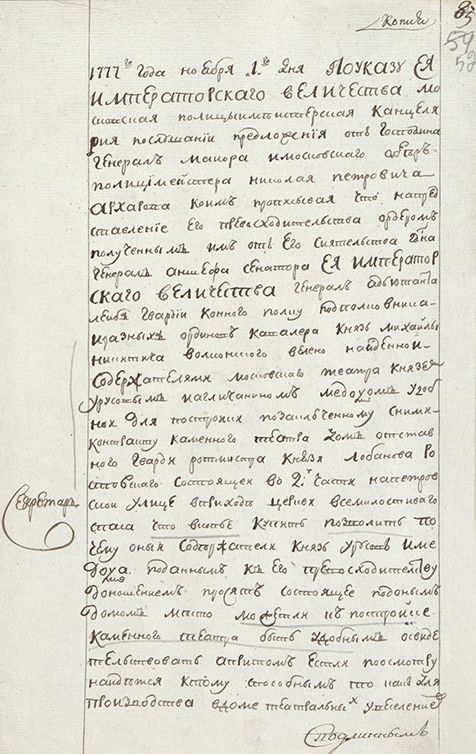 Копия
83
59
52
1777го года ноября 1го дня По указу ЕЯ
ИМПЕРАТОРСКАГО ВЕЛИЧЕСТВА мо
сковская полицымейстерская канцеля
рия послушании предложения отъ Господина
Генералъ маиора имосковскаго оберъ
полицiймейстера николая петровича
Архарова коимъ прописывая что напред
ставление Его превосходительства ордеромъ
полученнымъ имъ отъ Его Сиятельства Гдна
Генералъ аншефа сенатора ЕЯ ИМПЕРАТОР
СКАГО ВЕЛИЧЕСТВА Генералъ адъютанта
лейбъ Гвардии Конного полку подполковника
иразныхъ ординовъ Кавалера Князь михайлы
никитича волконского велено найденное
Содержателями московскаго театра Князем
урусовымъ иагличаниномъ медоксомъ удоб
ное для постройки позаключенному сними
контракту каменного театра домъ отстав
ного Гвардии ротмистра Князя Лобанова Ро
стовскаго Состоящей во 2й части напетров
ской улице вприходе церкви всемилостиваго
спаса что вкопье Купить позволить по
чему оныя Содержатели Князь урусовъ име
доксъ поданнымъ Къ Его превосходительству
доношениемъ просятъ состоящее подонымъ
домомъ место можетли кпостройке
Каменного театра быть удобнымъ освиде
тельствовать априсемъ Естли посмотру
найдется Ктому способнымъ то и для
Произвоцтва вдоме театральныхъ увеселенiй
Секретарь
Сподлиннымъ